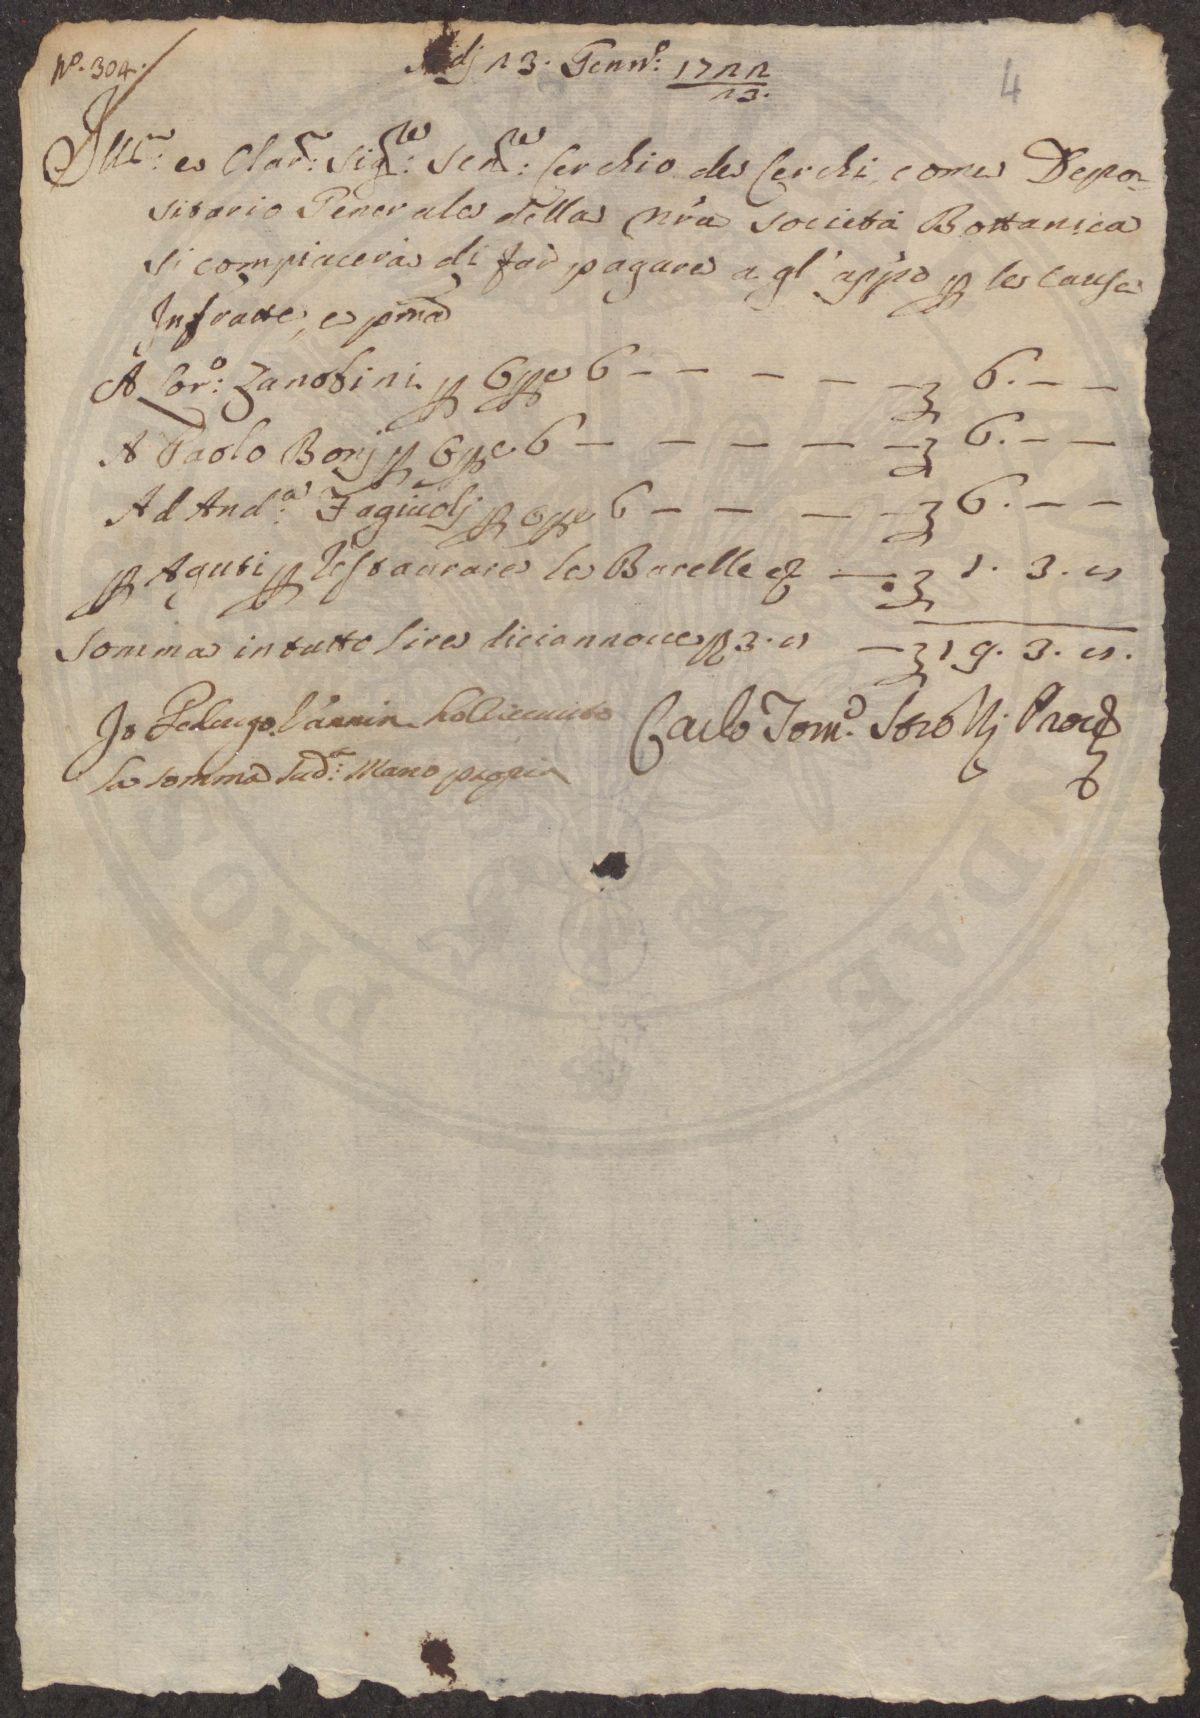 N.º 304.
Adj 13. Genn.º: 1722
23.
4
Ill.mo: e Clar.mo: Sig.re: Sen.re: Cerchio de Cerchi, come Depo-
sitario Generale della nr̃a Società Bottanica
si compiacerà di far pagare a gl' app.o p le cause
Infratte, e pma
A Lor.º: Zanobini p Gpe 6 — — — — — 6. — —
A Paolo Bonj p Gpe 6 — — — — — 6. — —
Ad And.a: Fagiuolj p Gpe 6 — — — — 6. — —
p Aguti p restaurare le Barelle — 1. 3. 4
Somma in tutto lire diciannove 3. 4 — 19. 3. 4.
Io Vannin ho riceuuto
la somma sud.a: Mano propria
Carlo Tom.º Proc.
PROS UDAE